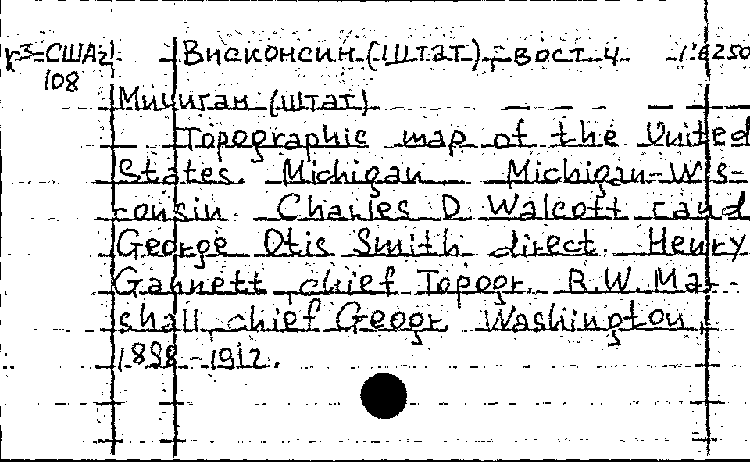 р3-США2 Висконсин (штат), вост. ч. 1:6250
108
Мичиган (штат)
Topographic map of the United
States. Michigan Michigan-Wis-
consin. Charles D. Walcott and
George Otis Smith direct. Henry
Gannett, chief Topogr. R.W. Mar-
shall, chief Geogr. Washington,
1898-1912.